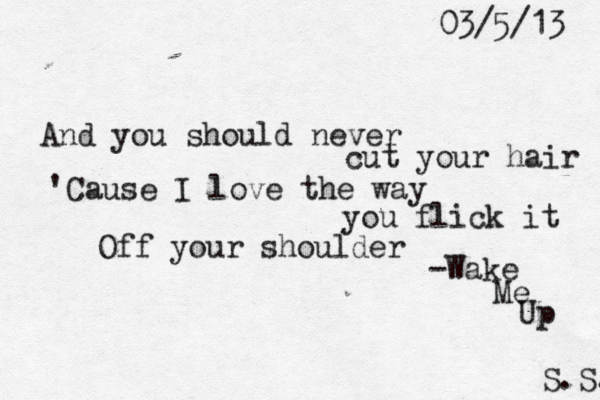 03/5/13
And you should never
cut your hair
'Cause I love the way
you flick it
Off your shoulder
-Wake
Me
Up
S.S.